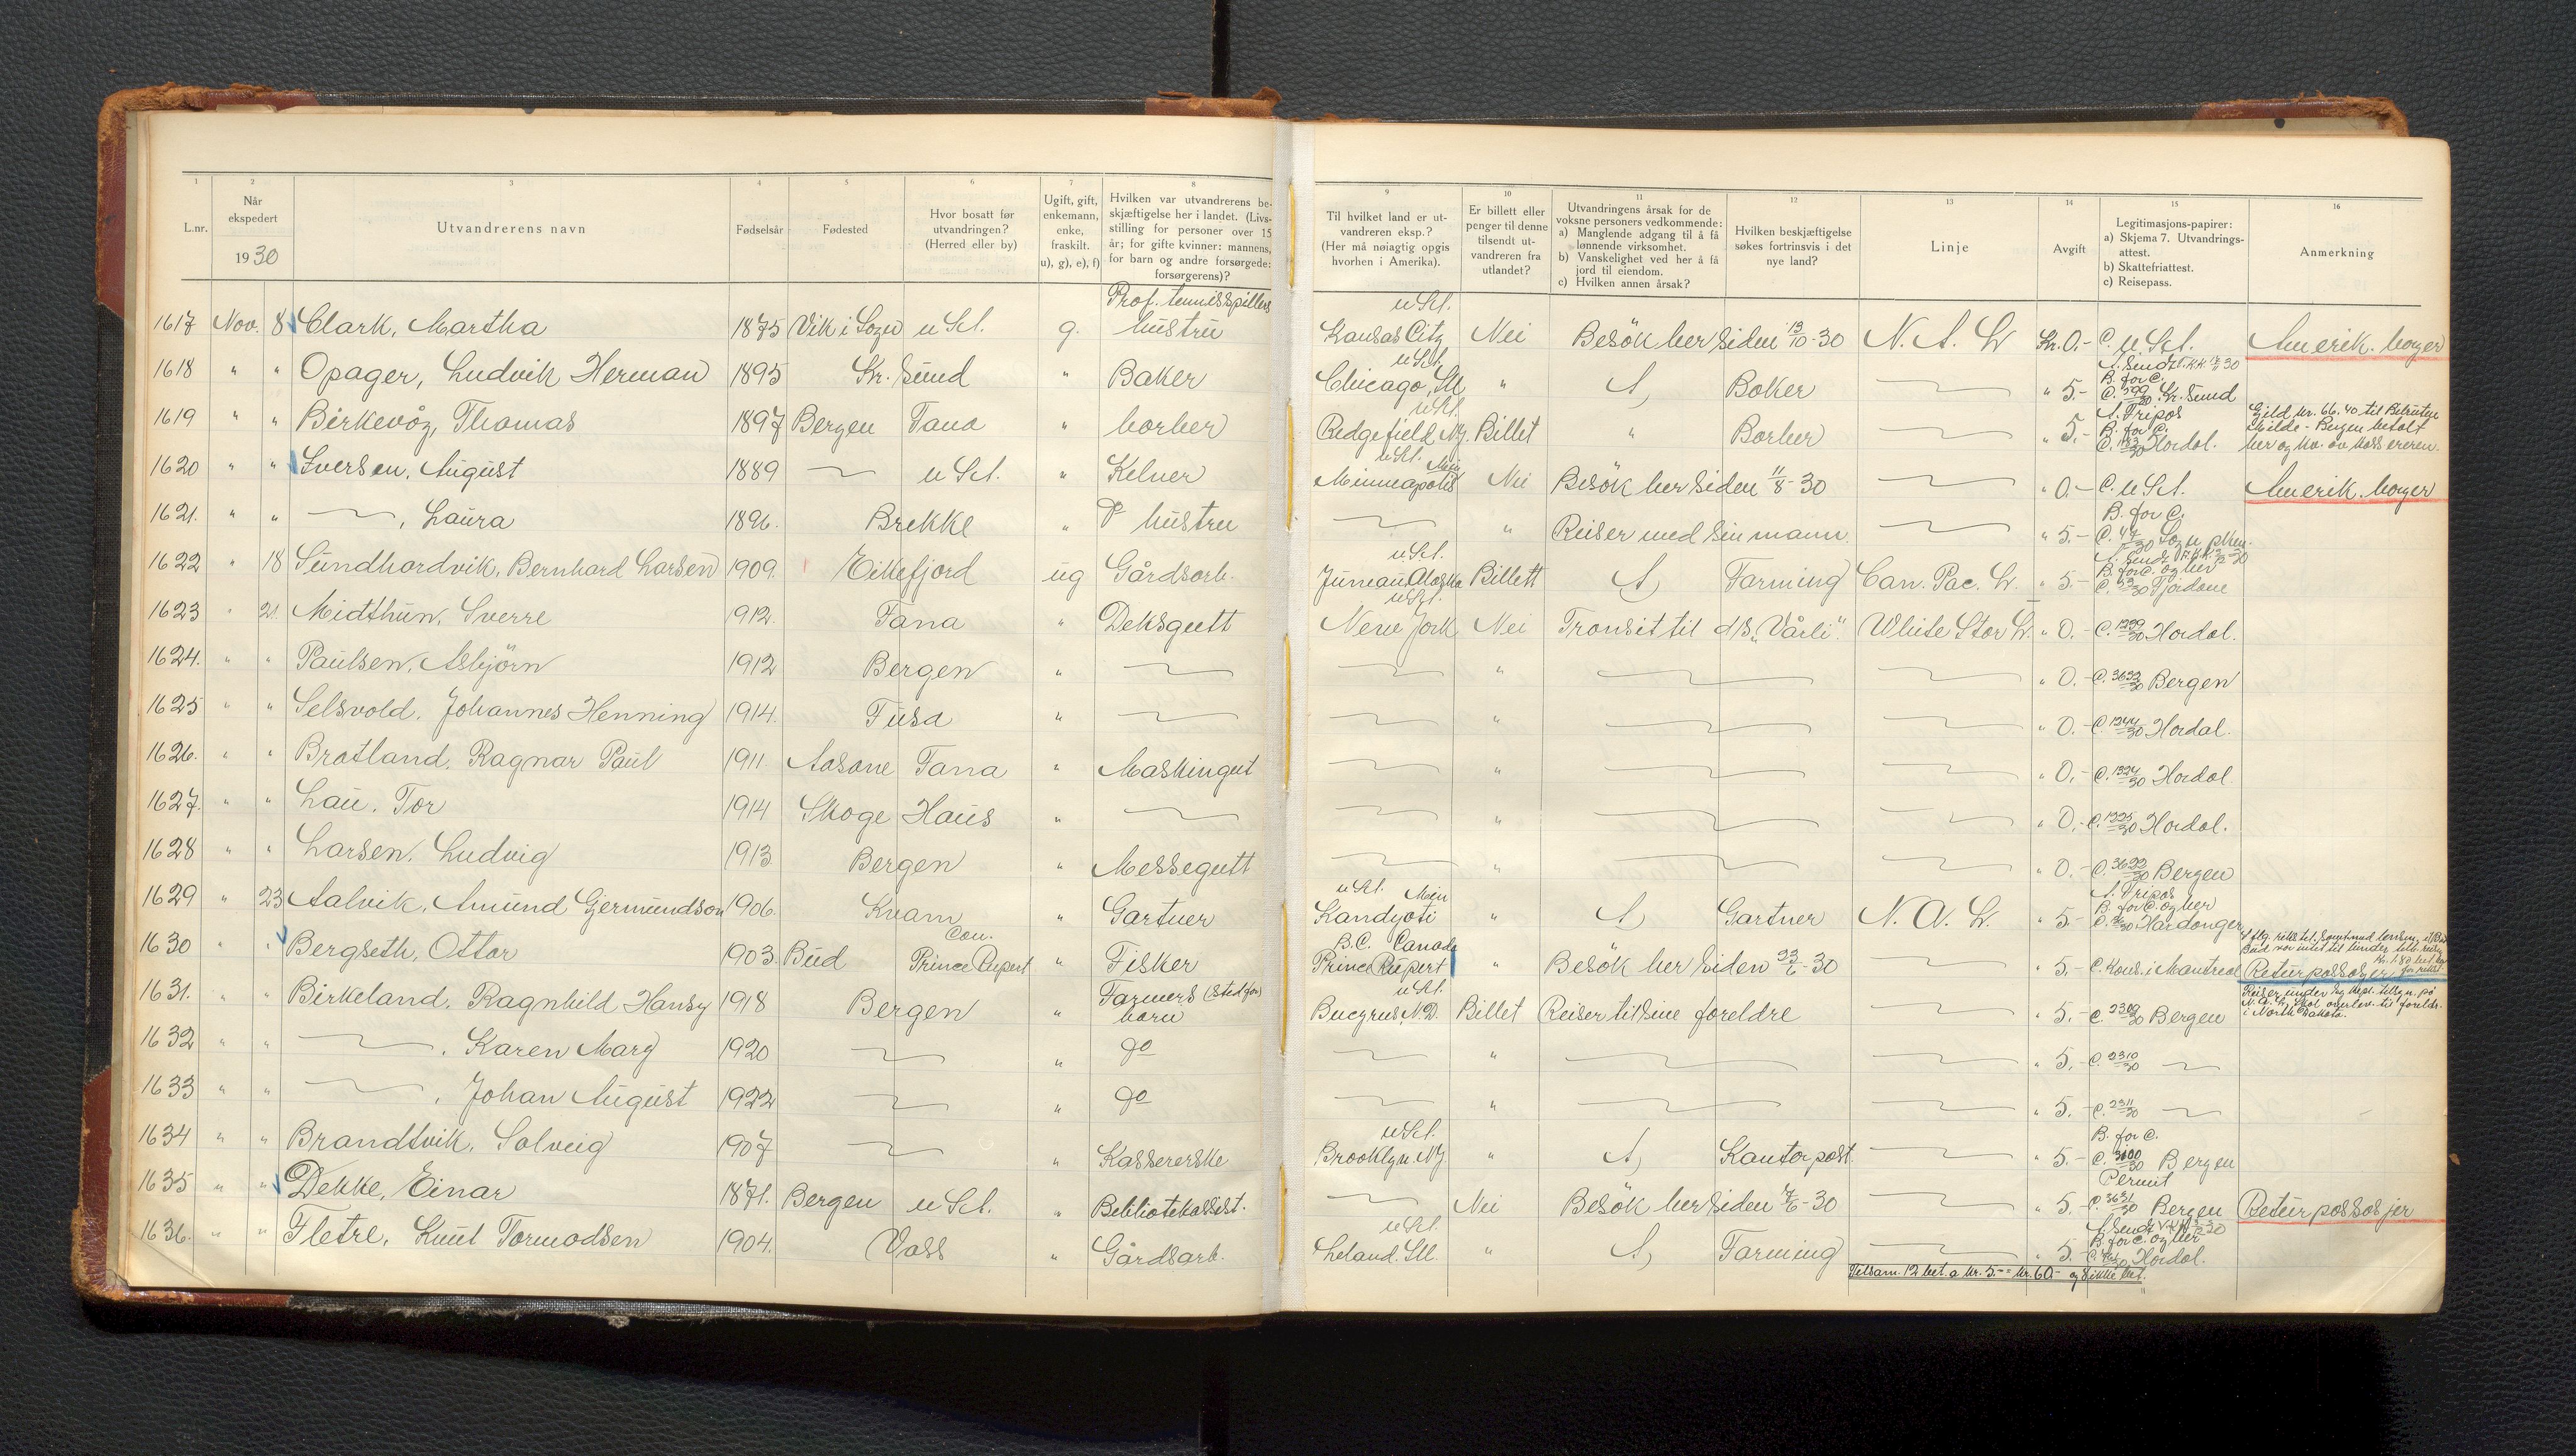 1 2 3 4 5 6 7 8 9 10 11 12 13 14 15 16
L.nr.
Når ekspedert 1930
Utvandrerens navn
Fødselsår
Fødested
Hvor bosatt før utvandringen? (Herred eller by)
Ugift, gift, enkemann, enke, fraskilt. u), g), e), f)
Hvilken var utvandrerens beskjæftigelse her i landet. (Livsstilling for personer over 15 år; for gifte kvinner: mannens, for barn og andre forsørgede: forsørgerens)?
Til hvilket land er utvandreren eksp.? (Her må nøiagtig opgis hvorhen i Amerika).
Er billett eller penger til denne tilsendt utvandreren fra utlandet?
Utvandringens årsak for de voksne personers vedkommende: a) Manglende adgang til å få lønnende virksomhet. b) Vanskelighet ved her å få jord til eiendom. c) Hvilken annen årsak?
Hvilken beskjæftigelse søkes fortrinsvis i det nye land?
Linje
Avgift
Legitimasjons-papirer: a) Skjema 7. Utvandringsattest. b) Skattefriattest. c) Reisepass.
Anmerkning
1617 Nov. 8 Clark, Martha 1875 Vik i Sogn u St. g. Prof. tennisspillers hustru u St. Kansas City Nei Besök her siden 13/10-30 N. A. L. Kr. 0.- C. u St. Amerik. borger
1618 " " Opager, Ludvik Herman 1895 Kr. Sund " Baker u St. Chicago, Ill " A, Baker " 5.- B. for C. Kr. Sund
1619 " " Birkevåg, Thomas 1897 Bergen Fana " barber u St. Redgefield NJ. Billet " Barber " 5.- A. Pripos B. for C. Hordal.
1620 " " Iversen, August 1889 u St. " Kelner u St. Minneapolis Minn Nei Besök her siden 11/8-30 " 0.- C. u St. Amerik. borger
1621. " " , Laura 1896. Brekke " hustru " Reiser med sin mann " 5.- B. for C.
1622 " 18 Sundhordvik, Bernhard Larsen 1909. Eikefjord ug Gårdsarb. u St. Juneau, Alaska Billett A, Farming Can. Pac. L. " 5.- B. for C. og her Fjordane
1623 " 21. Midthun, Sverre 1912. Fana " Deksgutt u St. New York Nei Transit til d/s "Vårli". White Star L. " 0.- C. 1299/30 Hordal.
1624. " " Paulsen, Asbjörn 1912 Bergen " " " 0.- C. 3632/30 Bergen
1625 " " Selsvold, Johannes Henning 1914. Fusa " " " 0.- C. 1244/30 Hordal.
1626. " " Bratland, Ragnar Paul 1911 Aasane Fana " Maskingut " " 0.- C. 1324/30 Hordal
1627. " " Lau, Tor 1914 Skoge Haus " " " 0.- C. 1325/30 Hordal.
1628 " " Larsen, Ludvig 1913. Bergen " Messegutt " " 0.- C. 3622/30 Bergen
1629 " 23 Aalvik, Amund Gjermundson 1906. Kvam " Gartner u St. Minn Kandyoti " A, Gartner N. A. L. " 5.- A. Pripos B. for C. og her Hardanger
1630 " " Bergseth, Ottar 1903. Bud Can. Prince Rupert " Fisker B.C. Canada Prince Rupert " Besök her siden 23/6-30 " 5.- C. Kons. i Montreal Returpassasjer
1631. " " Birkeland, Ragnhild Hansy 1918 Bergen " Farmers (stedfar) barn u St. Bucyrus, N.D. Billet Reiser til sine foreldre " 5.- C. 2309/30 Bergen
1632 " " , Karen Marg 1920 " do " " 5.- C. 2310/30
1633 " " , Johan August 1922 " do " " 5.- C. 2311/30
1634 " " Brandtvik, Solveig 1907 " Kassererske u St. Brooklyn. NJ. " A, Kontorpost. " 5.- B. for C. C. 3100/30 Bergen
1635 " " Dekke, Einar 1871. Bergen u St. " Bibliotekassist. Nei Besök her siden 7/6-30 " 5.- Permit C. 3631/30 Bergen Returpassasjer
1636. " " Fletre, Knut Tormodsen 1904. Voss " Gårdsarb. u St. Leland. Ill. " A, Farming " 5.- B. for C. og her Hordal.
Tilsam. 12 bet. a kr. 5.- = kr. 60.- og 8 ikke bet.